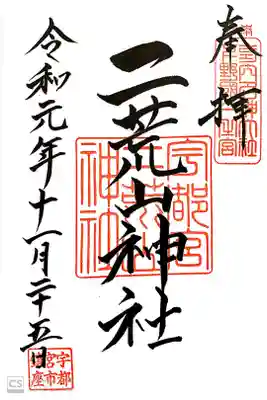 奉拝
二荒山神社
宇都宮
二荒山
神社
令和元年十一月二十五日
宇都
宮市
座
CS